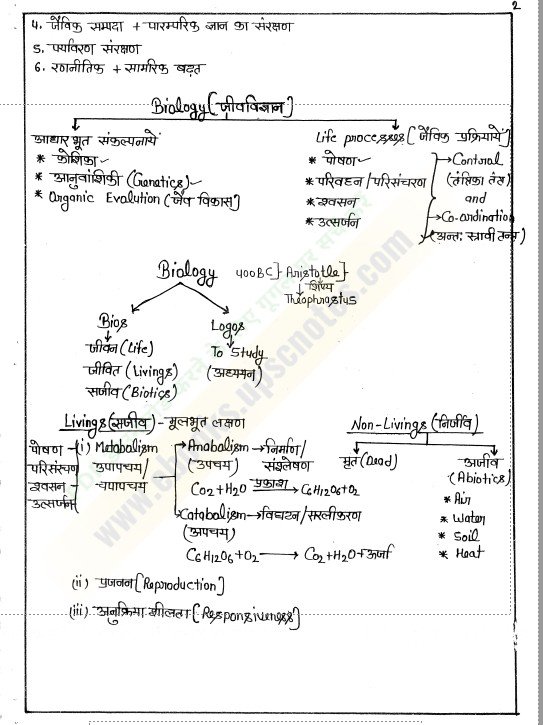 2
4. जैविक सम्पदा + पारम्परिक ज्ञान का संरक्षण
5. पर्यावरण संरक्षण
6. रणनीतिक + सामरिक बढ़त
Biology [जीवविज्ञान]
आधारभूत संकल्पनायें
* कोशिका
* आनुवांशिकी (Genetics)
* Organic Evolution (जैव विकास]
Life processes [जैविक प्रक्रियायें]
* पोषण
* परिवहन/परिसंचरण
* श्वसन
* उत्सर्जन
→ Control
(तंत्रिका तंत्र)
and
→ Co-ordination
(अन्तः स्त्रावी तन्त्र)
Biology
400BC} Aristotle}
↓ शिष्य
Theophrastus
Bios
जीवन (Life)
जीवित (Livings)
सजीव (Biotics)
Logos
To Study
(अध्ययन)
Livings (सजीव) - मूलभूत लक्षण
पोषण
परिसंचरण
श्वसन
उत्सर्जन
(i) Metabolism
उपापचय/
चयापचय
→ Anabalism → निर्माण/
(उपचय) संश्लेषण
CO2 + H2O प्रकाश → C6H12O6 + O2
→ Catabalism → विघटन/सरलीकरण
(अपचय)
C6H12O6 + O2 → CO2 + H2O + ऊर्जा
(ii) प्रजनन [Reproduction]
(iii) अनुक्रियाशीलता [Responsiveness]
Non-Livings (निर्जीव)
मृत (Dead)
अजीव
(Abiotics)
* Air
* Water
* Soil
* Heat